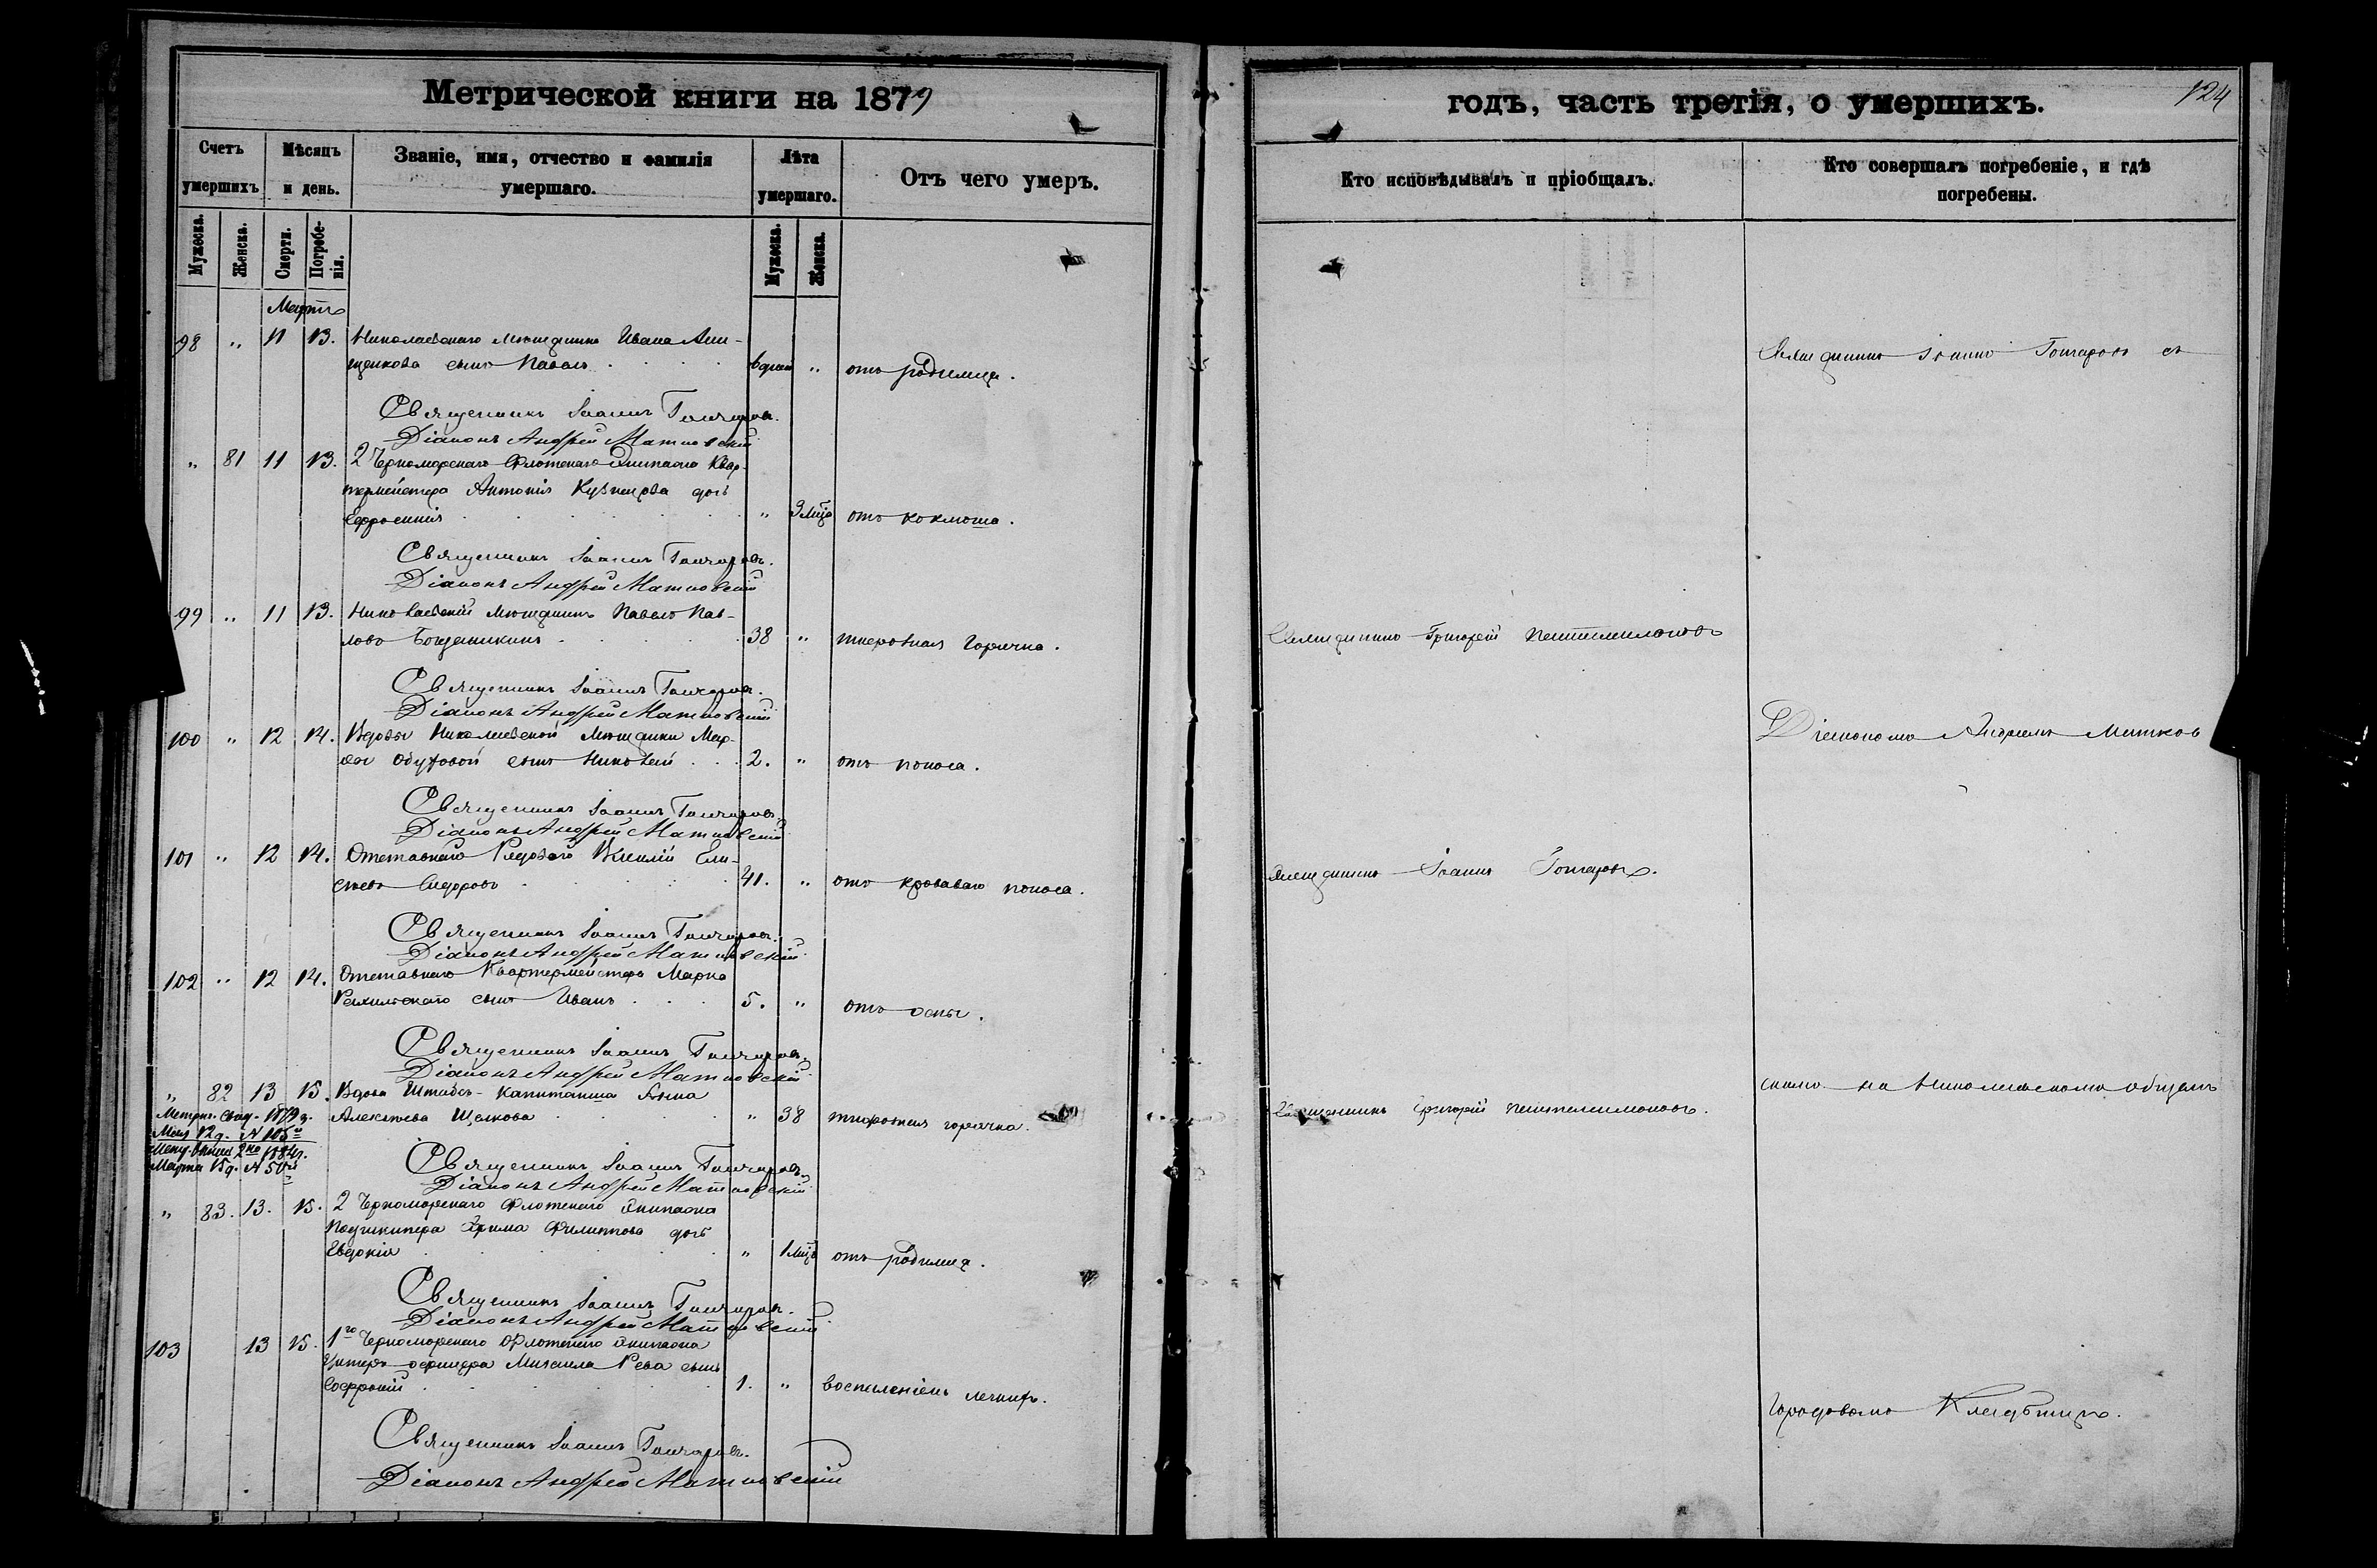 Метрической книги на 1879
годъ, часть третія, о умершихъ.
124
Счетъ умершихъ
Мѣсяцъ и день.
Званіе, имя, отчество и фамилія умершаго.
Лѣта умершаго.
Отъ чего умеръ.
Кто исповѣдывалъ и пріобщалъ.
Кто совершалъ погребеніе, и гдѣ погребены.
Мужеска.
Женска.
Смерти.
Погребенія.
Мужеска.
Женска.
Мартъ
98 " 11 13. Николаевскаго мѣщанина Ивана
сынъ Павелъ 6 дней " отъ родимца.
Священникъ Іоаннъ Гончаровъ съ
Священникъ Іоаннъ Гончаровъ.
Діаконъ Андрей Матковскій
" 81 11 13. 2 Черноморскаго Флотскаго Экипажа Квар-
термейстера Антонія Кузнецова дочь
Евфросинія " 3 мѣс отъ коклюша.
Священникъ Іоаннъ Гончаровъ.
Діаконъ Андрей Матковскій
99 " 11 13. Николаевскій мѣщанинъ Павелъ Пав-
ловъ 38 " тифозная горячка.
Священникъ Григорій Пентелимоновъ
Священникъ Іоаннъ Гончаровъ.
Діаконъ Андрей Матковскій
100 " 12 14. Вдовы Николаевской мѣщанки Мар-
Обуховой сынъ Николай 2. " отъ поноса.
Діакономъ Андреемъ Матков
Священникъ Іоаннъ Гончаровъ.
Діаконъ Андрей Матковскій
101 " 12 14. Отставнаго Рядоваго Василій Ели-
сѣевъ Сидоровъ 41. " отъ кроваваго поноса.
Священникъ Іоаннъ Гончаровъ.
Священникъ Іоаннъ Гончаровъ.
Діаконъ Андрей Матковскій
102 " 12 14. Отставнаго Квартермейстера Марка
сынъ Иванъ 5. " отъ оспы.
Священникъ Іоаннъ Гончаровъ.
Діаконъ Андрей Матковскій
" 82 13 15. Вдова Штабсъ-Капитанша Анна
Алексѣева Щелкова " 38 тифозная горячка.
Священникъ Григорій Пентелимоновъ.
скимъ на Николаевскомъ общемъ
Метрич. Свид. 1879 г.
Мая 12 д. № 105
1884 г.
Марта 15 д. № 50
Священникъ Іоаннъ Гончаровъ.
Діаконъ Андрей Матковскій
" 83. 13. 15. 2 Черноморскаго Флотскаго Экипажа
Подшкипера Филиппова дочь
Евдокія " 1 мѣс отъ родимца.
Священникъ Іоаннъ Гончаровъ.
Діаконъ Андрей Матковскій
103 13 15. 1го Черноморскаго Флотскаго Экипажа
Унтеръ-офицера Михаила Рева сынъ
Софроній 1. " воспаленіемъ легкихъ.
городовомъ Кладбищѣ.
Священникъ Іоаннъ Гончаровъ.
Діаконъ Андрей Матковскій